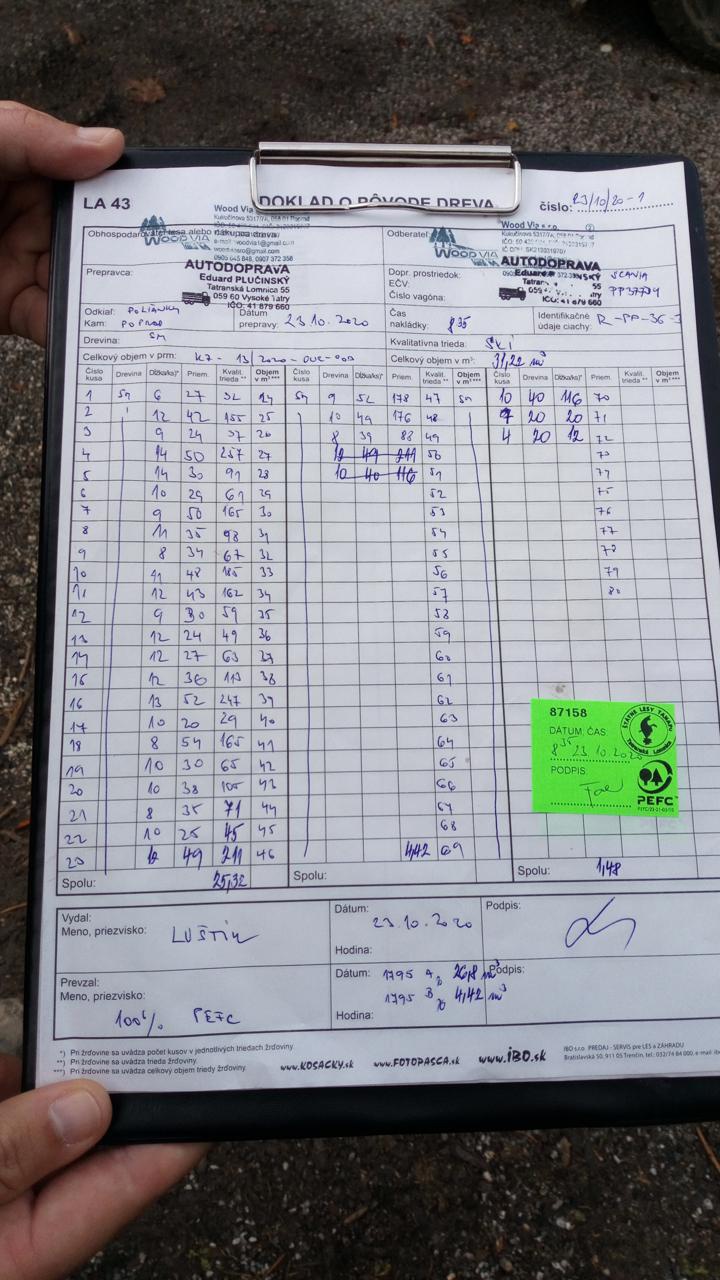 LA 43 DOKLAD O PÔVODE DREVA číslo: 23/10/20-1
Wood Via
WOOD VIA
Obhospodarovateľ lesa alebo nákupca dreva:
woodvia1@gmail.com
Odberateľ:
Wood Via s.r.o.
WOOD VIA
Prepravca:
AUTODOPRAVA
Eduard PLUČINSKÝ
Tatranská Lomnica 55
059 60 Vysoké Tatry
IČO: 41 879 660
Dopr. prostriedok:
EČV:
Číslo vagóna:
AUTODOPRAVA
55
IČO: 41 879 660
SCANIA
Odkiaľ: POLIANKY
Kam: POPRAD
Dátum prepravy: 23.10.2020
Čas nakládky: 8 35
Identifikačné údaje ciachy:
Drevina: SM
Kvalitatívna trieda:
Celkový objem v prm:
Celkový objem v m³: 31,22 m³
Číslo kusa Drevina Dĺžka/ks)* Priem. Kvalit. trieda ** Objem v m³ *** Číslo kusa Drevina Dĺžka/ks)* Priem. Kvalit. trieda ** Objem v m³ *** Číslo kusa Drevina Dĺžka/ks)* Priem. Kvalit. trieda ** Objem v m³ ***
1 Sm 6 27 32 24 Sm 9 52 178 47 Sm 10 40 116 70
2 12 42 155 25 10 49 176 48 7 20 20 71
3 9 24 37 26 8 39 88 49 4 20 12 72
4 14 50 257 27 12 49 211 50
5 14 30 91 28 10 40 116 51
6 10 29 61 29 52 75
7 9 50 165 30 53 76
8 11 35 98 31 54 77
9 8 34 67 32 55 78
10 11 48 185 33 56 79
11 12 43 162 34 57 80
12 9 30 59 35 58
13 12 24 49 36 59
14 12 27 63 37 60
15 12 36 113 38 61
16 13 52 247 39 62
17 10 20 29 40 63
18 8 54 165 41 64
19 10 30 65 42 65
20 10 38 105 43 66
21 8 35 71 44 67
22 10 25 45 45 68
23 12 49 211 46 4,42 69
Spolu: 25,32 Spolu: Spolu: 1,48
87158
DÁTUM, ČAS
8 35 23.10.2020
PODPIS
ŠTÁTNE LESY TANAPU
Tatranská Lomnica
PEFC
Vydal:
Meno, priezvisko: LUŠTÍK
Dátum: 23.10.2020
Hodina:
Podpis:
Prevzal:
Meno, priezvisko:
100% PEFC
Dátum: 1795 A 26,8 m³
1795 B 4,42 m³
Hodina:
Podpis:
*) Pri žrďovine sa uvádza počet kusov v jednotlivých triedach žrďoviny.
**) Pri žrďovine sa uvádza trieda žrďoviny.
***) Pri žrďovine sa uvádza celkový objem triedy žrďoviny.
www.KOSACKY.sk www.FOTOPASCA.sk www.IBO.sk
IBO s.r.o. PREDAJ - SERVIS pre LES a ZÁHRADU
Bratislavská 50, 911 05 Trenčín, tel.: 032/74 84 000, e-mail